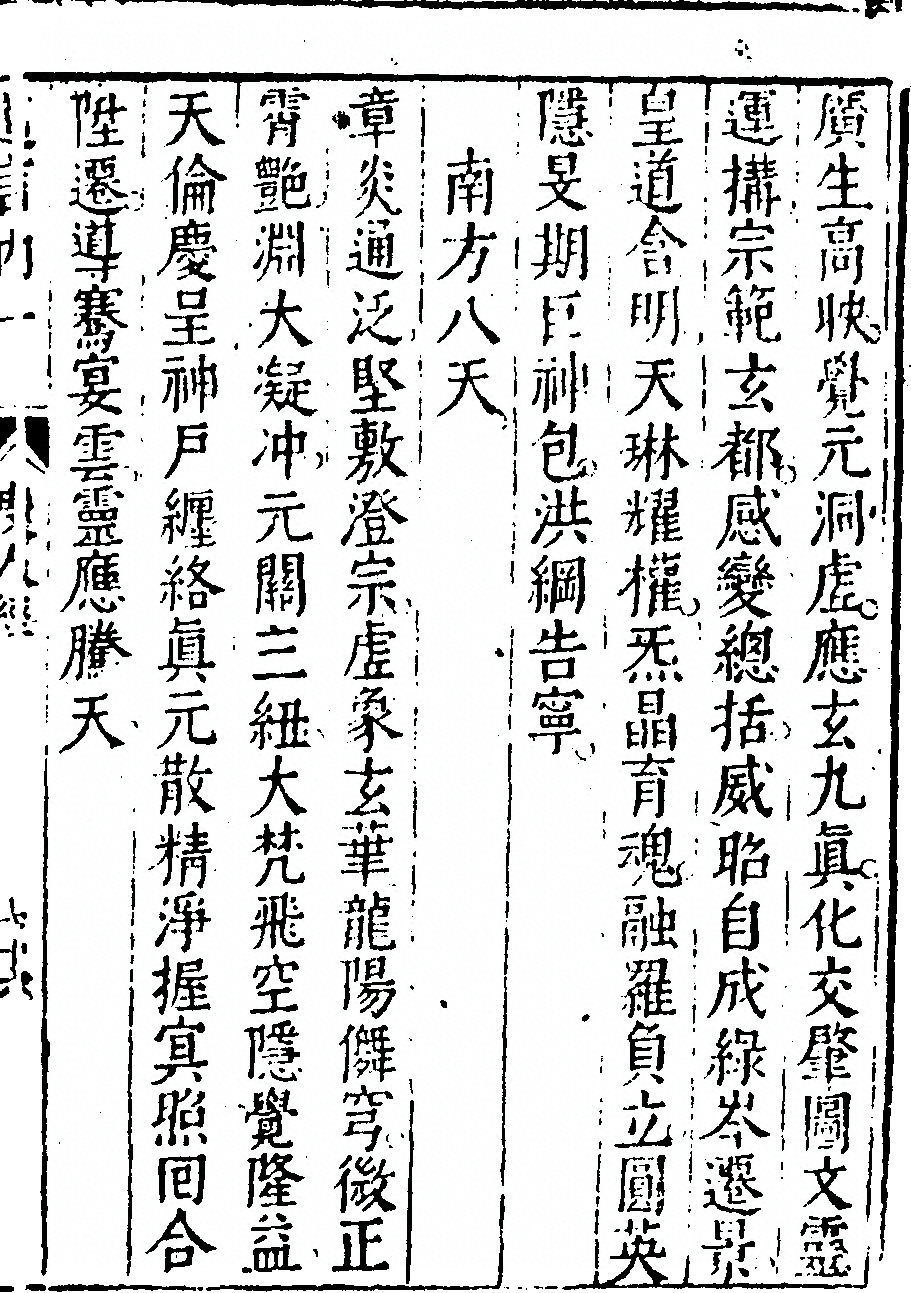 質生高映覺元洞虛應玄九眞化交肇圖文靈
運搆宗範玄都感變總括威昭自成綠岑遷景
皇道含明天琳耀權炁晶育魂融羅負立圓英
隱旻期巨神包洪綱告寧
南方八天
章炎通泛堅敷澄宗虛象玄華龍陽僲穹微正
霄艷淵大凝冲元關三紐大梵飛空隱覺隆益
天倫慶呈神戶纏絡眞元散精淨握寘照回合
陞遷導騫宴雲靈應騰天